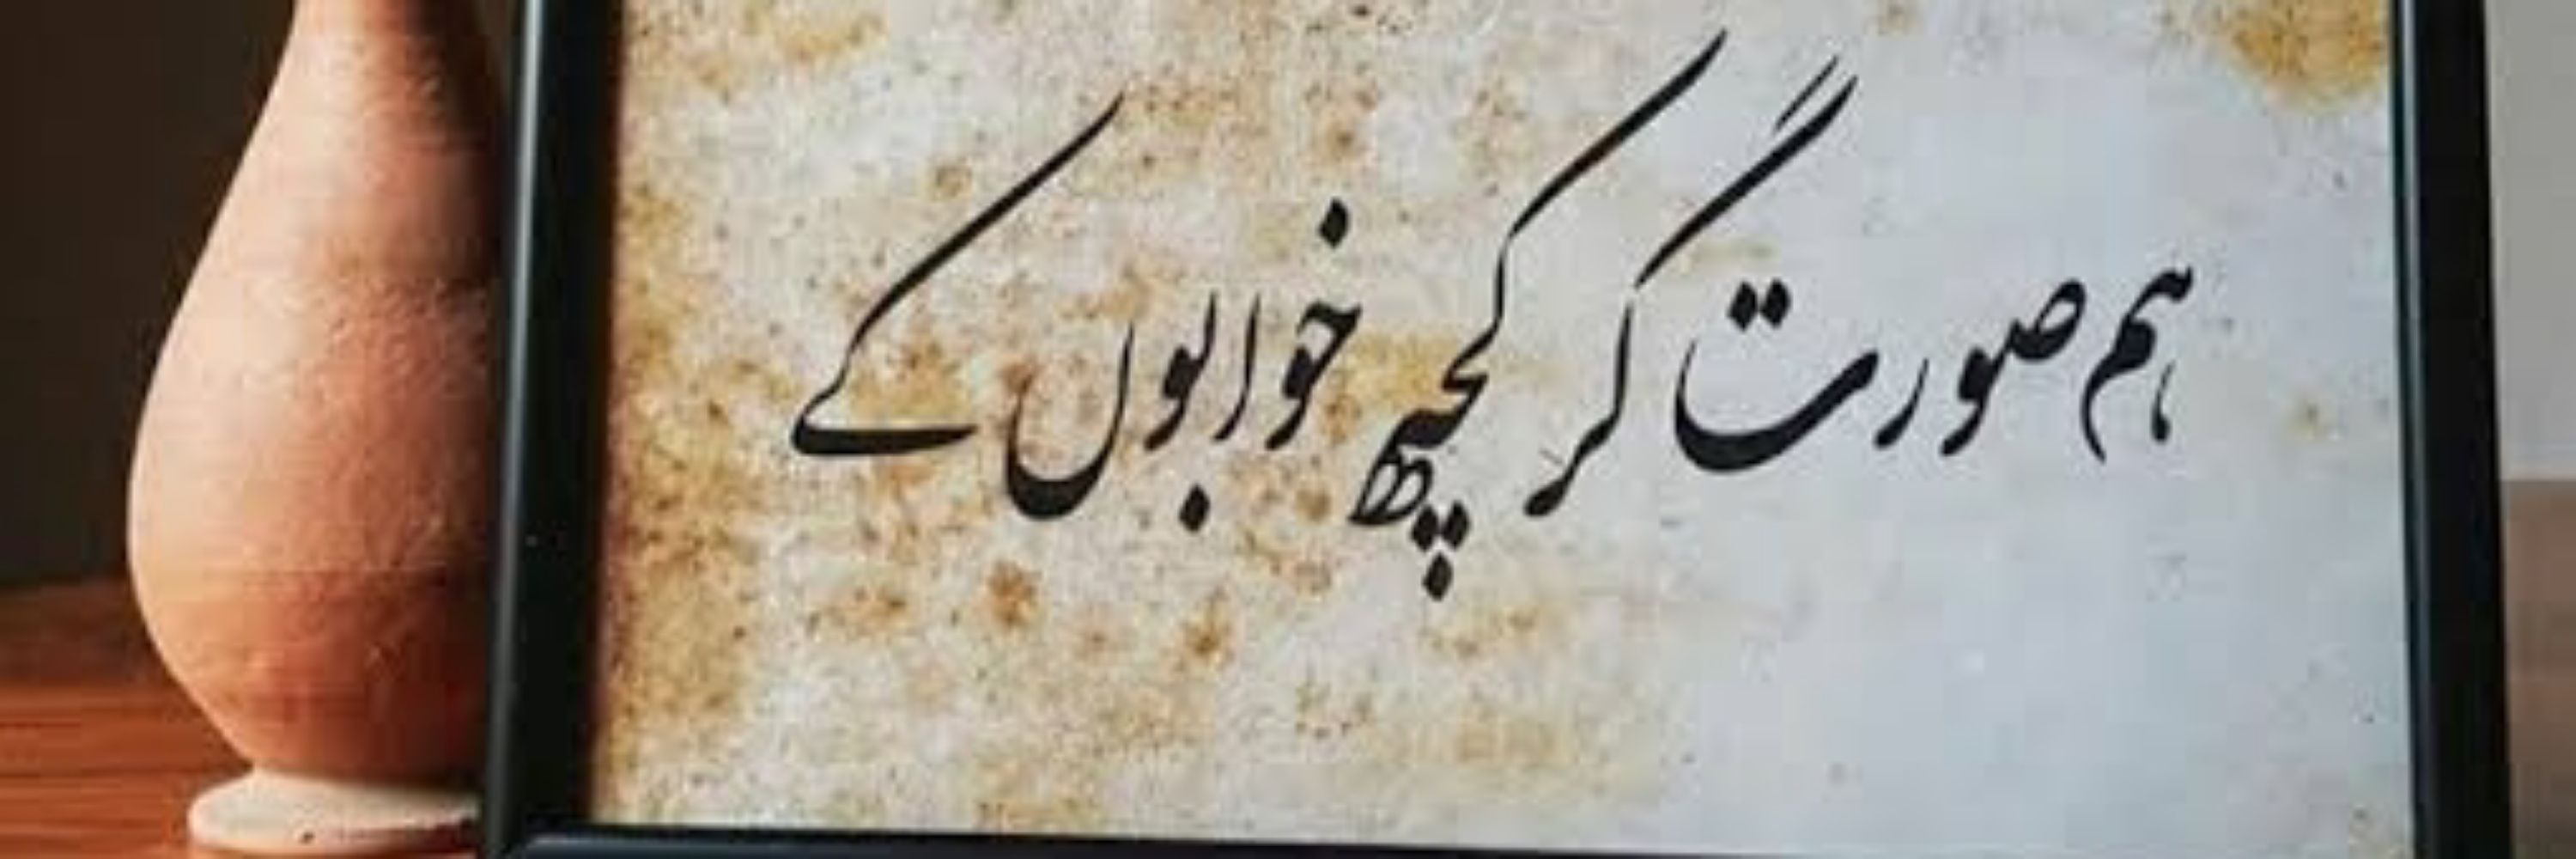 ہم صورت گر کچھ خوابوں کے